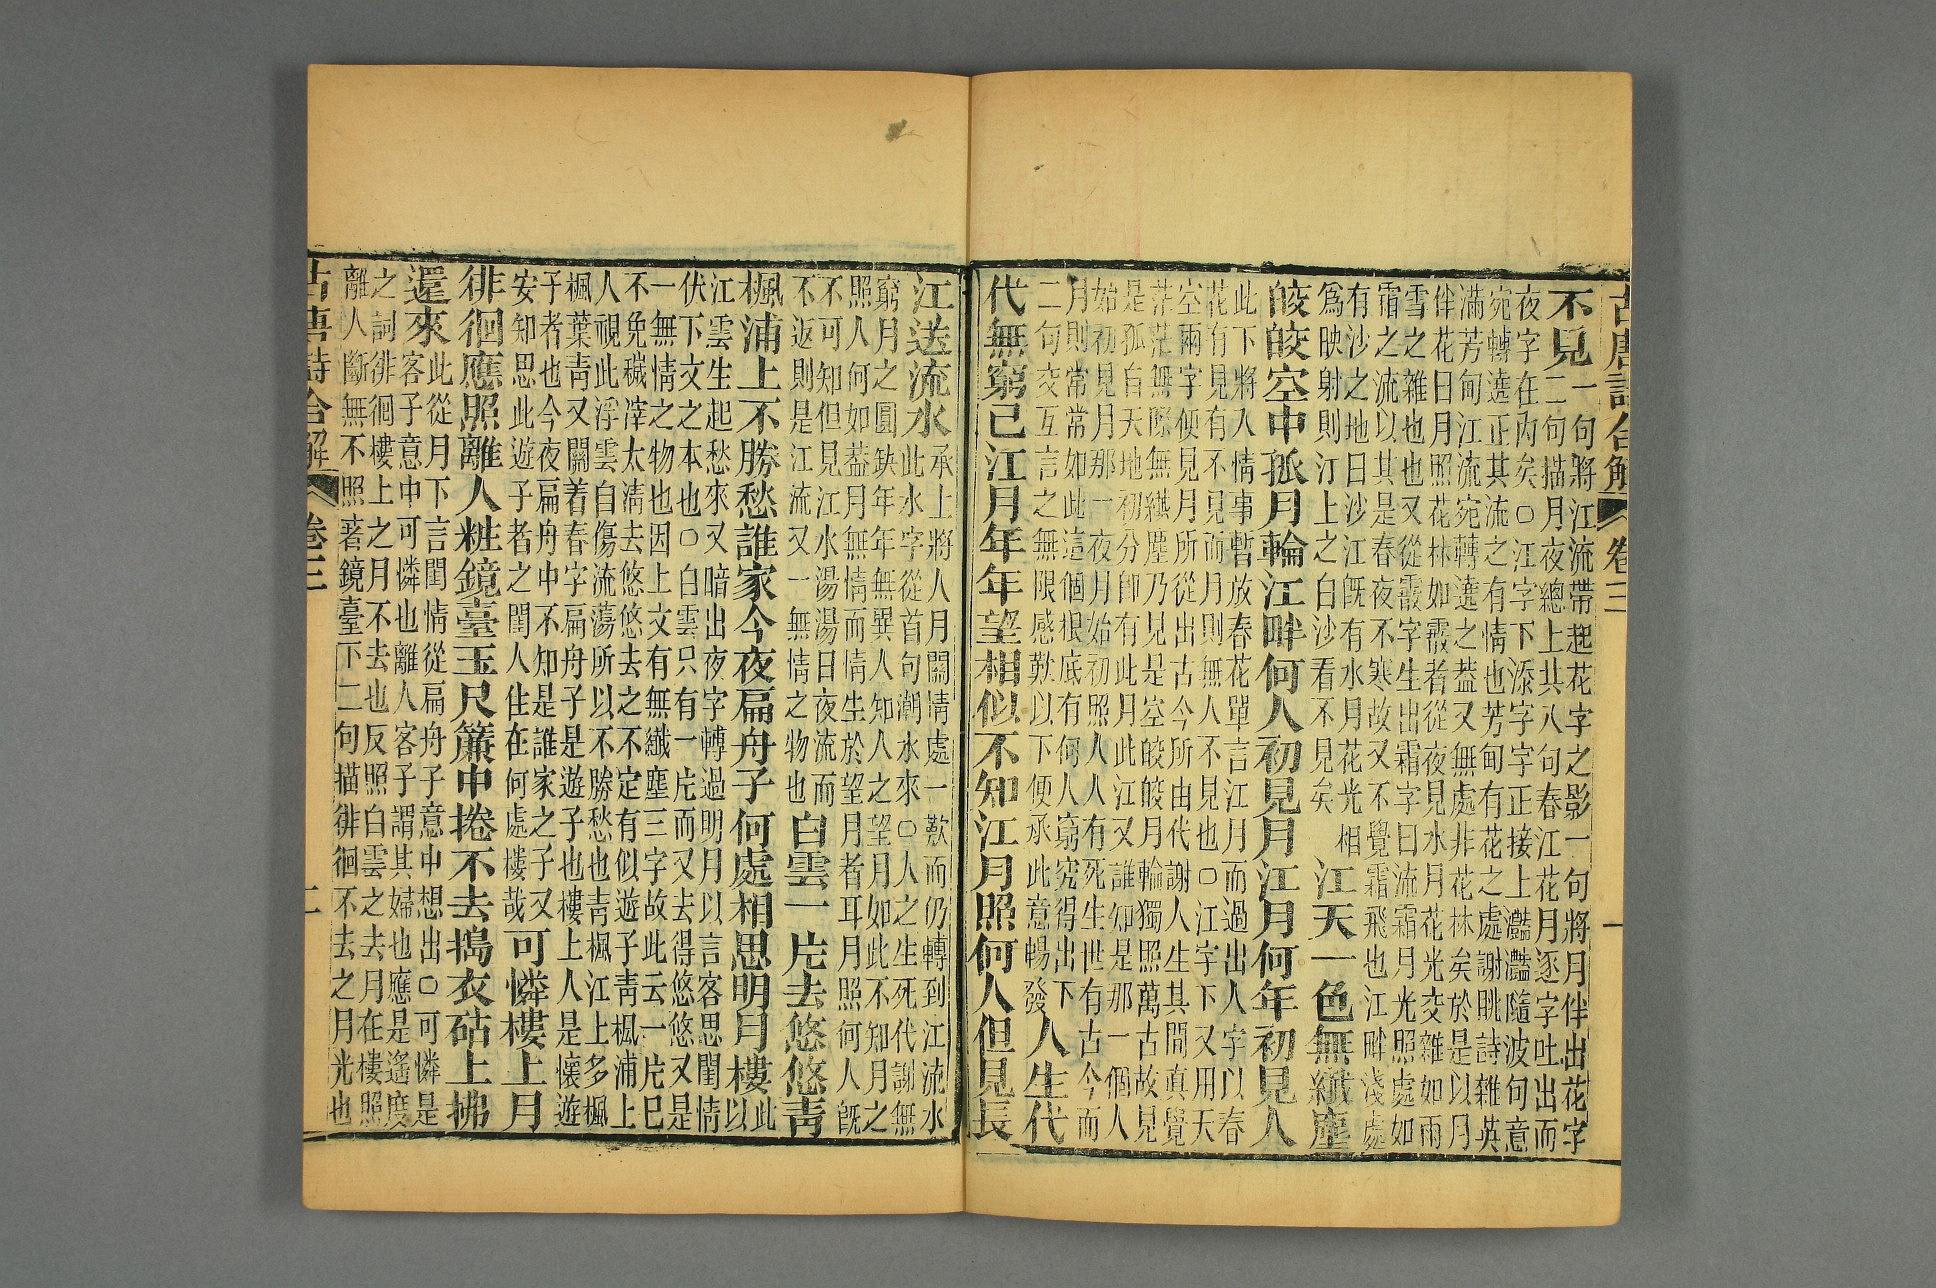 古唐詩合解　卷三　一
不見
一句將江流帶起花字之影一句將月伴出花字
二句描月夜總上共八句春江花月逐字吐出而
夜字在內矣○江字下添字字正接上灧灧隨波句意
宛轉遶正其流之有情也芳甸有花之處謝眺詩雜英
滿芳甸江流宛轉遶之葢又無處非花林矣於是以月
伴花日月照花林如霰者從夜見水月花光交雜如雨
雪之雜也又從霰字生出霜字曰流霜月光照處如
霜之流以其是春夜不寒故又不覺霜飛也江畔淺處
有沙之地曰沙江旣有水月花光相
爲映射則汀上之白沙看不見矣
江天一色無纖塵
皎皎空中孤月輪江畔何人初見月江月何年初見人
此下將入情事暫放春花單言江月而過出人字以春
花有見有不見而月則無人不見也○江字下又用天
空兩字便見月所從出古今所由代謝人生其間眞覺
茫茫無際無纖塵乃見是空皎皎月輪獨照萬古故見
是孤自天地初分卽有此月此江又誰知是那一個人
始初見月那一夜月始初照人人有死生世有古今而
月則常常如此這個根底有何人窮究得出下
二句交互言之無限感歎以下便承此意暢發
人生代
代無窮已江月年年望相似不知江月照何人但見長
江送流水
承上將人月關情處一歎而仍轉到江流水
此水字從首句潮水來○人之生死代謝無
窮月之圓缺年年無異人知人之望月如此不知月之
照人何如葢月無情而情生於望月者耳月照何人旣
不可知但見江水湯湯日夜流而
不返則是江流又一無情之物也
白雲一片去悠悠青
楓浦上不勝愁誰家今夜扁舟子何處相思明月樓
此
以
江雲生起愁來又暗出夜字轉過明月以言客思閨情
伏下文之本也○白雲只有一片而又去得悠悠又是
一無情之物也因上文有無纖塵三字故此云一片已
不免穢滓太淸去悠悠去之不定有似遊子靑楓浦上
人視此浮雲自傷流蕩所以不勝愁也靑楓江上多楓
楓葉靑又關着春字扁舟子是遊子也樓上人是懷遊
子者也今夜扁舟中不知是誰家之子又
安知思此遊子者之閨人住在何處樓哉
可憐樓上月
徘徊應照離人粧鏡臺玉戶簾中捲不去搗衣砧上拂
還來
此從月下言閨情從扁舟子意中想出○可憐是
客子意中可憐也離人客子謂其婦也應是遙度
之詞徘徊樓上之月不去也反照白雲之去月在樓照
離人斷無不照著鏡臺下二句描徘徊不去之月光也
古唐詩合解　卷三　二